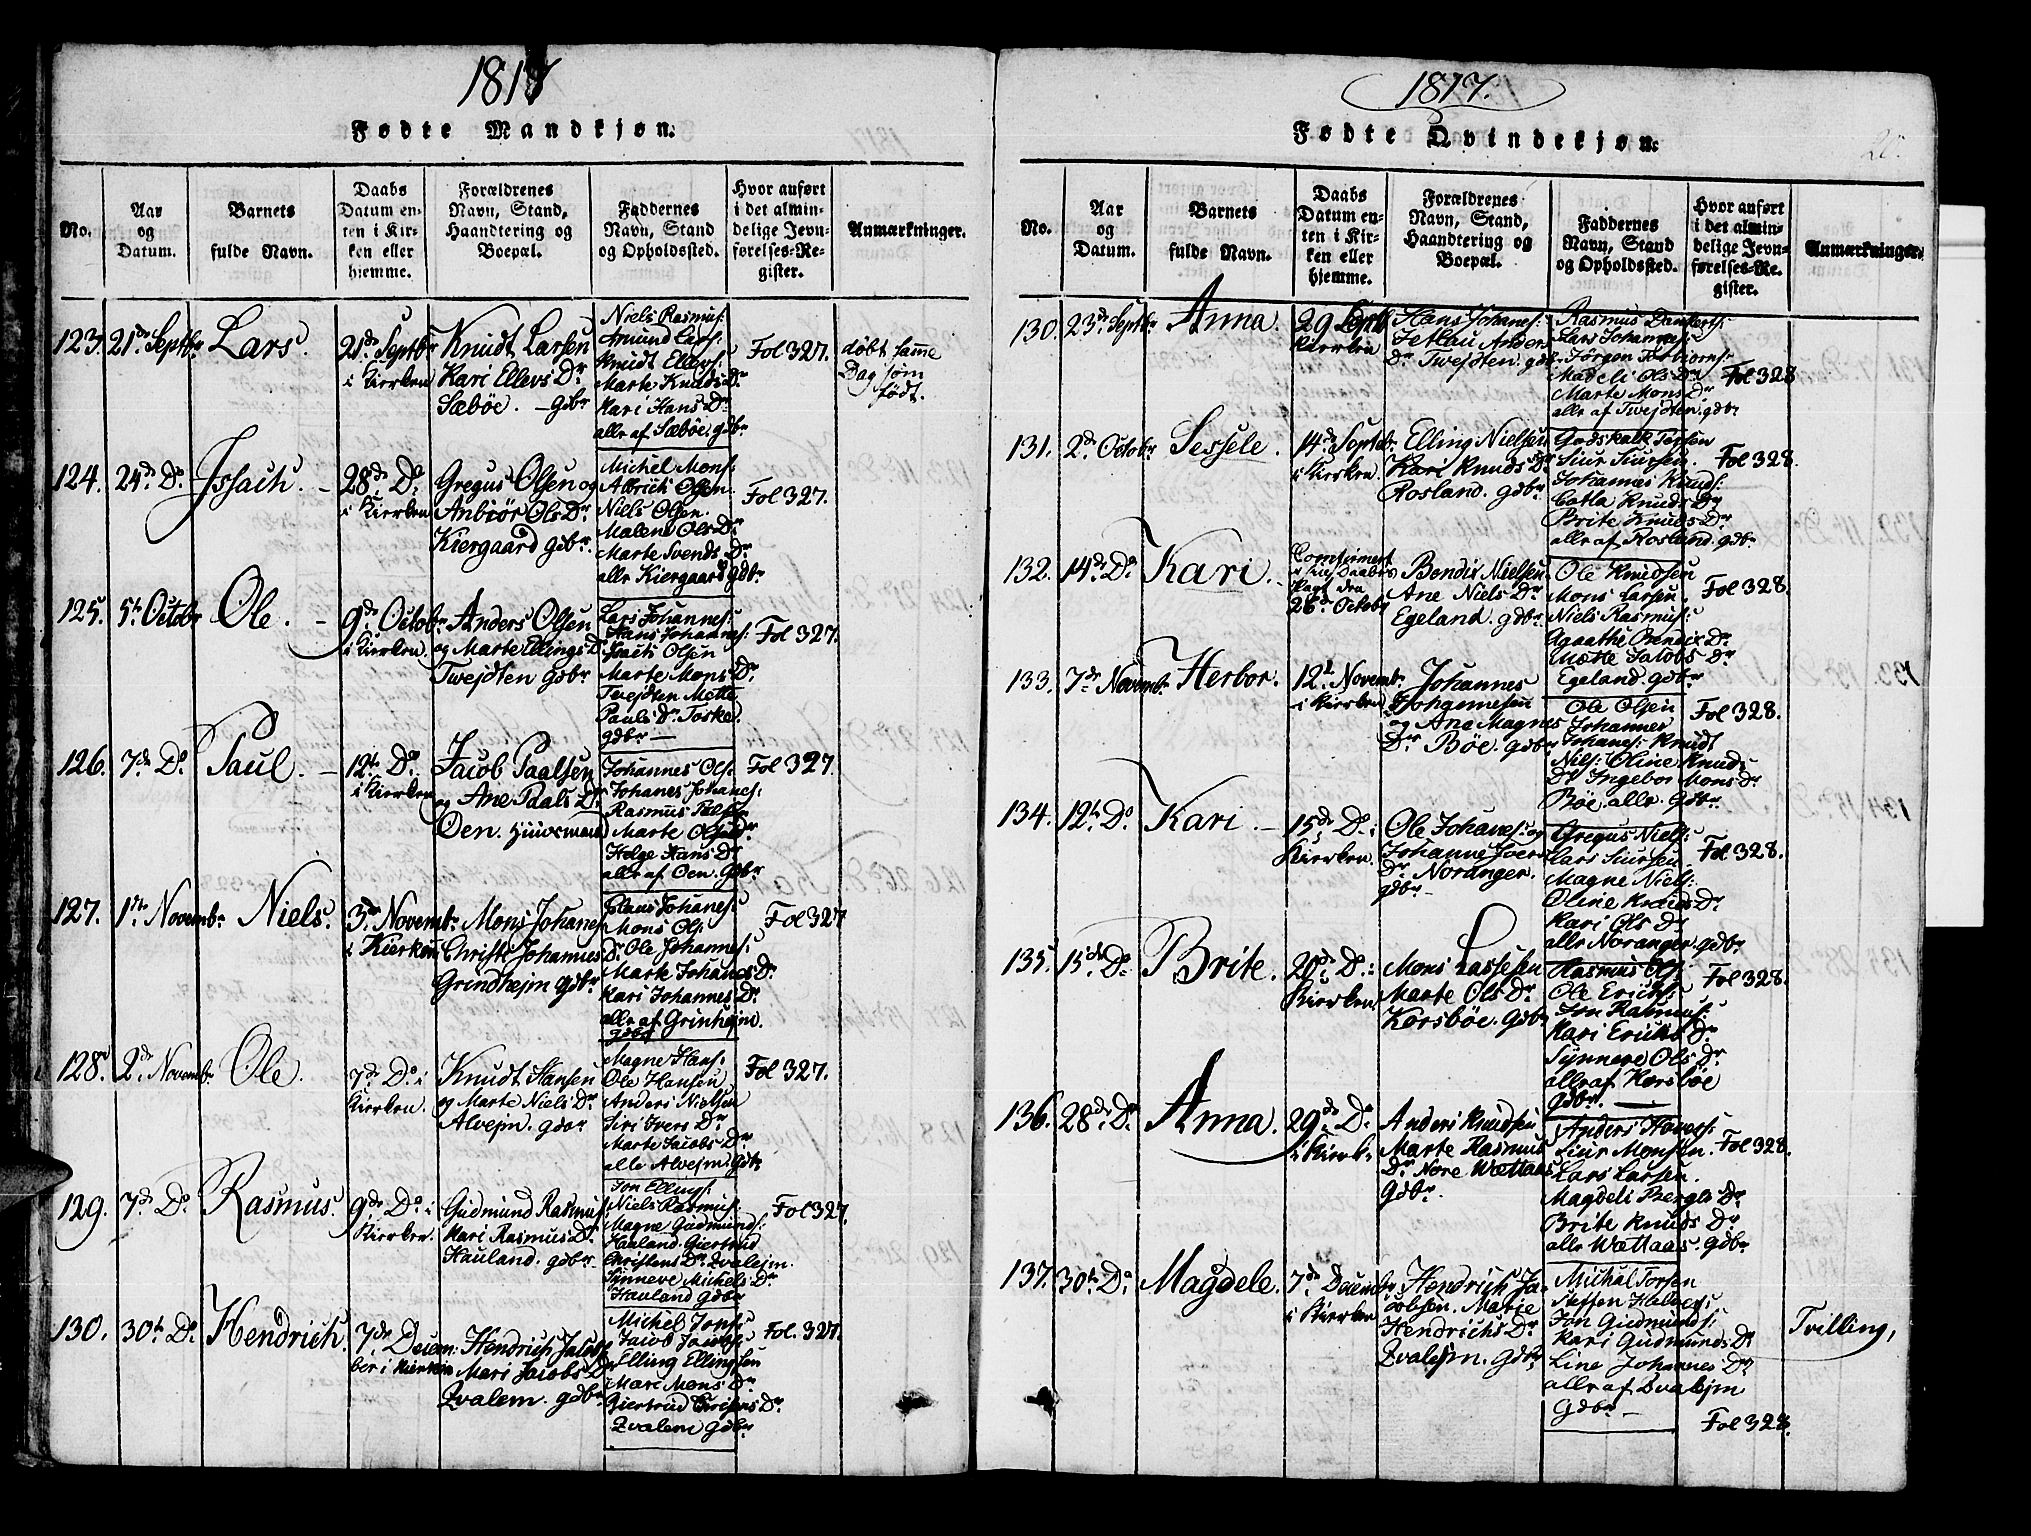 1817
Fødte Mandkjøn.
No.
Aar
og
Datum.
Barnets
fulde Navn.
Daabs
Datum en-
ten i Kir-
ken eller
hjemme.
Forældrenes
Navn, Stand,
Haandtering og
Boepæl.
Faddernes
Navn, Stand
og Opholdssted.
Hvor anført
i det almin-
delige Jevn-
førelses-Re-
gister.
Anmærkninger.
123. 21de Septbr Lars.
21de Septbr
i Kierken
Knudt Larsen
Kari Ellevs Dr
Sæbøe. - gdbr
Niels Rasmus:
Amund Lars:
Knudt Ellevs:
Marte Knuds Dr
Kari Hans Dr
alle af Sæbøe. gdbr
Fol 327.
døbt samme
Dag som
født.
124. 24de Do Issach. -
28de Do
i Kierken
Gregus Olsen og
Anbiör Ols Dr
Kiergaard gdbr.
Michel Mons:
Albrich Olsen.
Niels Olsen.
Malene Ols Dr
Marte Svends Dr
alle Kiergaard gdbr.
Fol 327.
125. 5te Octobr Ole. -
9de Octobr.
i Kierken.
Anders Olsen
og Marte Ellings Dr
Twejdten gdbr
Lars Johannes:
Hans Johannes:
Olsen
Marte Mons Dr.
Twejdten Mette
Pauls Dr. Toske.
gdbr -
Fol 327.
126. 7de Do. Paul. -
12te Do
i Kierken
Jacob Paalsen
og Ane Paals Dr
Oen. Huusmand
Johannes Ols:
Johanes Johanes:
Rasmus
Marte Ols Dr
Helge Hans Dr
alle af Oen. gdbr.
Fol 327.
127. 1ste Novembr Niels.
3de Novembr.
i Kierken
Mons Johanes
Christi Johannes Dr
Grindhejm gdbr.
Johanes:
Mons Ols:
Ole Johannes:
Marte Johanes Dr.
Kari Johannes Dr.
alle af Grinhejm.
gdbr
Fol 327
128. 2de Novembr Ole.
7de Do i
Kierken.
Knudt Hansen
og Marte Niels Dr.
Alvejn. gdbr
Magne Hans:
Ole Hansen
Anders Nielsen
Siri Ivers Dr.
Marte Jacobs Dr
alle Alvejm. gdbr
Fol 327.
129. 7de Do Rasmus.
9de Do i
Kierken.
Gudmund Rasmus:
Kari Rasmus Dr.
Hauland. gdbr.
Jon Ellings:
Niels Rasmus:
Magne Gudmund:
Hauland. Giertrud
Christens Dr. Qvalejm.
Synneve Michels Dr
Hauland gdbr
Fol 327.
130. 30te Do Hendrich.
7de Decem:
ber i Kierken
Hendrich Jacobs:
Mari Jacobs Dr
Qvalem. gdbr.
Michel Jons:
Jacob Jacobs:
Elling Ellingsen
Mari Mons Dr
Giertrud Dr.
Qvalem gdbr
Fol. 327.
1817.
Fødte Qvindekjøn.
20.
No.
Aar
og
Datum.
Barnets
fulde Navn.
Daabs
Datum en-
ten i Kir-
ken eller
hjemme.
Forældrenes
Navn, Stand,
Haandtering og
Boepæl.
Faddernes
Navn, Stand
og Opholdssted.
Hvor anført
i det almin-
delige Jevn-
førelses-Re-
gister.
Anmærkninger.
130. 23de Septbr Anna.
29 Septb
Kierken
Hans Johanes:
Anders
Dr Twejdten. gdbr.
Rasmus Dankerts:
Lars Johannes:
Jørgen Torbiørns:
Madeli Ols Dr
Marte Mons Dr
alle af Twejdten. gdbr.
Fol 328
131. 2de Octobr Sessele.
14de Septbr.
i Kierken
Elling Nielsen
Kari Knuds Dr
Rosland. gdbr.
Godskalk
Siur Siursen.
Johannes Knuds:
Knuds Dr
Brite Knuds Dr
alle af Rosland. gdbr.
Fol 328.
132. 14de Do Kari. -
26de Octobr
Bendix Nielsen
Ane Niels Dr
Egeland. gdbr
Ole Knudsen
Mons Larsen.
Niels Rasmus:
Agaathe Dr
Mette Jacobs Dr
Egeland. gdbr
Fol 328.
133. 7de Novembr Herbor.
12te Novembr.
i Kierken
Johannes
Johannesen
og Ane Magnes
Dr Bøe. gdbr
Ole Olsen
Johannes
Johanes: Knudt
Nils: Oline Knuds
Dr Ingebor Mons Dr
Bøe alle. gdbr.
Fol 328.
134. 12te Do Kari. -
15de Do i
Kierken.
Ole Johanes: og
Johanne Ivers
Dr Noranger.
gdbr -
Gregus Niels:
Lars Siursen.
Magne Niels:
Oline Knuds Dr.
Kari Ols Dr
alle Noranger. gdbr
Fol 328.
135. 15de Do Brite.
20de Do i
Kierken
Mons Lassesen
Marte Ols Dr.
Korsbøe. gdbr
Rasmus Ols:
Ole Erichs:
Jon Rasmus:
Kari Erichs Dr.
Synneve Ols Dr
alle af Korsbøe
gdbr.
Fol 328.
136. 28de Do Anna.
29de Do
i Kierk:
Anders Knudsen
Marte Rasmus
Dr Nore Wættaas
gdbr.
Anders
Siur Monsen.
Lars Larsen.
Magdeli Dr
Brite Knuds Dr
alle Wættaas. gdbr
Fol 328.
137. 30te Do Magdele.
7de Decembr
i Kierken
Hendrich Ja-
cobsen. Marie
Hendrichs Dr
Qvalejm. gdbr
Michal Torsen
Steffen
Jon Gudmunds:
Kari Gudmunds Dr
Line Johannes Dr.
alle af Qvalejm
gdbr -
Fol 328.
Tvilling,